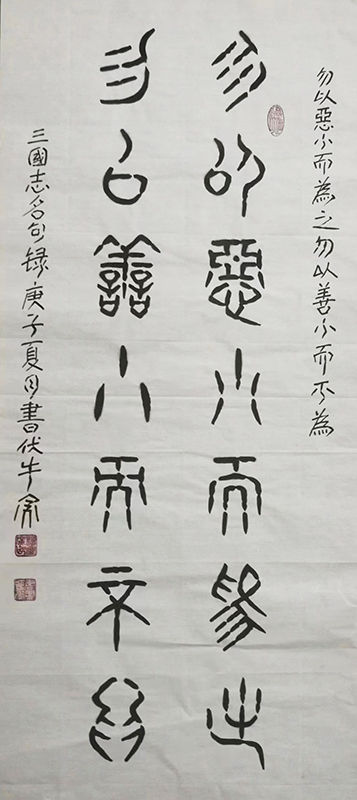 勿以惡小而為之勿以善小而不為
勿以惡小而為之
勿以善小而不為
三國志名句録庚子夏月書伏牛